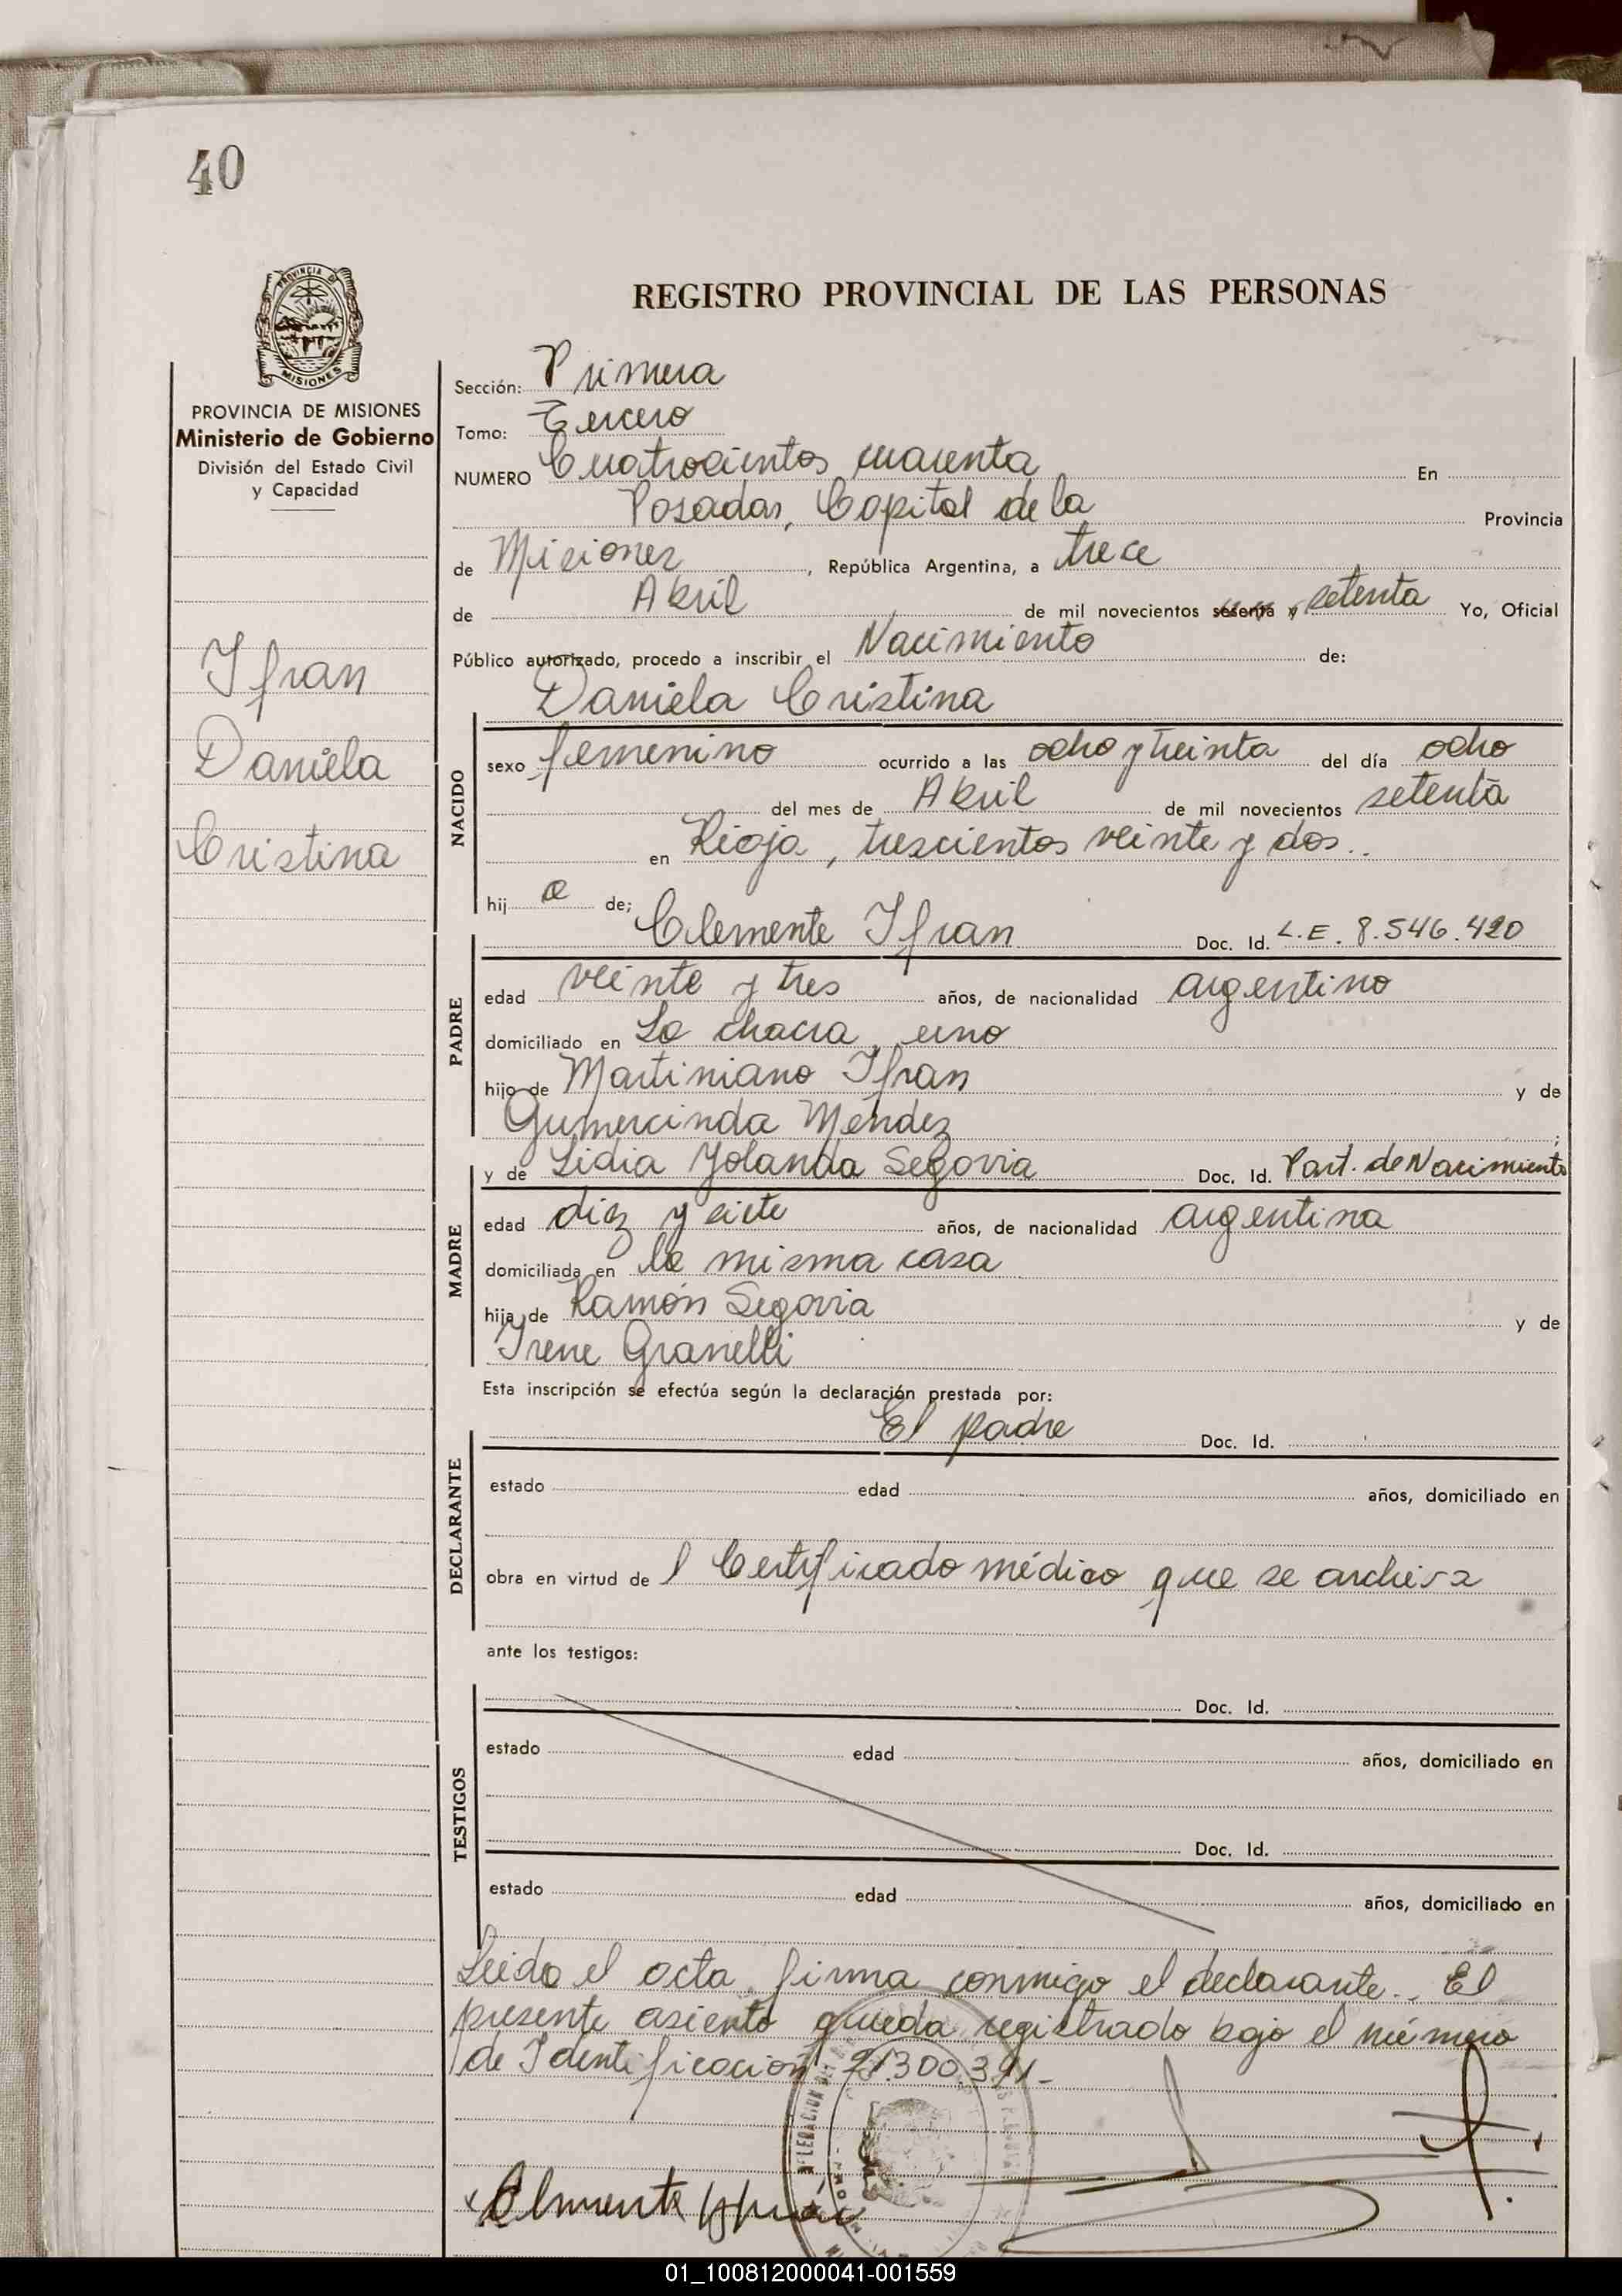 40
PROVINCIA DE
MISIONES
REGISTRO PROVINCIAL DE LAS PERSONAS
PROVINCIA DE MISIONES
Ministerio de Gobierno
División del Estado Civil
y Capacidad
Ifran
Daniela
Cristina
Sección: Primera
Tomo: Tercero
NUMERO Cuatrocientos cuarenta En
Posadas, Capital de la Provincia
de Misiones, República Argentina, a trece
de Abril de mil novecientos sesenta y setenta Yo, Oficial
Público autorizado, procedo a inscribir el Nacimiento de:
Daniela Cristina
NACIDO
sexo femenino ocurrido a las ocho y treinta del día ocho
del mes de Abril de mil novecientos setenta
en Rioja, trescientos veinte y dos..
hij a de;
Clemente Ifran Doc. Id. L.E. 8.546.420
PADRE
edad veinte y tres años, de nacionalidad argentino
domiciliado en La chacra, uno
hijo de Martiniano Ifran y de
Gumercinda Mendez;
y de Lidia Yolanda Segovia Doc. Id. Part. de Nacimiento
MADRE
edad diez y siete años, de nacionalidad argentina
domiciliada en la misma casa
hija de Ramón Segovia y de
Irene Granelli
Esta inscripción se efectúa según la declaración prestada por:
El padre Doc. Id.
DECLARANTE
estado edad años, domiciliado en
obra en virtud de l Certificado médico que se archiva
ante los testigos:
TESTIGOS
Doc. Id.
estado edad años, domiciliado en
Doc. Id.
estado edad años, domiciliado en
Leido el acta, firma conmigo el declarante.. El
presente asiento queda registrado bajo el número
de Identificación 21.300.391-
01_100812000041-001559